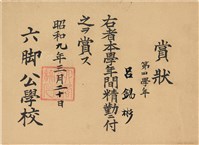 賞狀
第四學年
呂錫彬
右者本學年間精勤ニ付
之ヲ賞ス
昭和九年三月二十日
六脚公學校